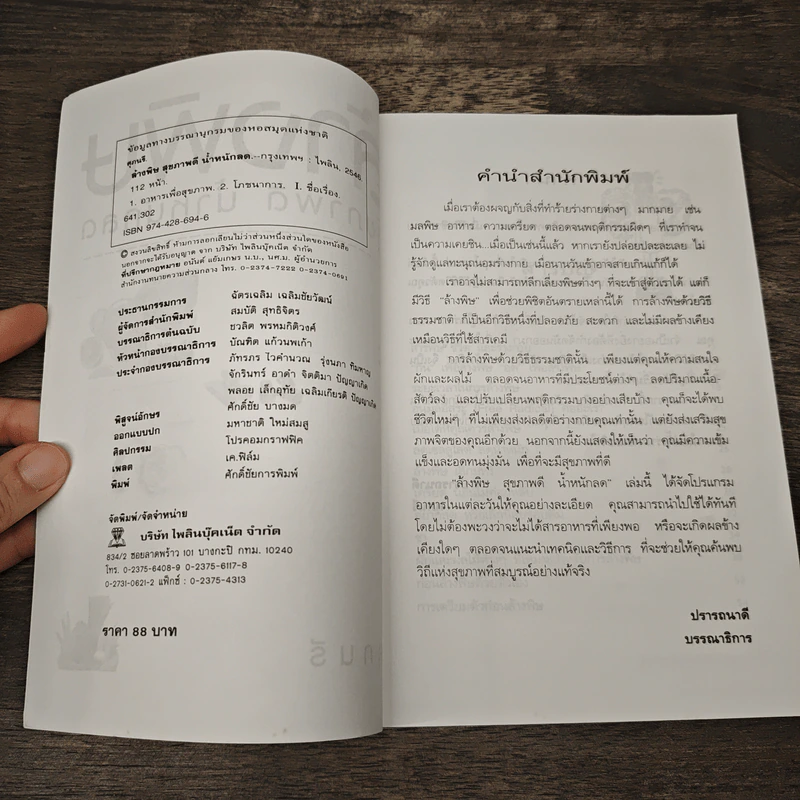 ข้อมูลทางบรรณานุกรมของหอสมุดแห่งชาติ
สุกนรี.
ล้างพิษ สุขภาพดี น้ำหนักลด.--กรุงเทพฯ : ไพลิน, 2546
112 หน้า.
1. อาหารเพื่อสุขภาพ. 2. โภชนาการ. I. ชื่อเรื่อง.
641.302
ISBN 974-428-694-6
© สงวนลิขสิทธิ์ ห้ามการลอกเลียนไม่ว่าส่วนหนึ่งส่วนใดของหนังสือ
นอกจากจะได้รับอนุญาต จาก บริษัท ไพลินบุ๊คเน็ต จำกัด
ที่ปรึกษากฎหมาย อนันต์ แย้มเกษร น.บ., นศ.ม. ผู้อำนวยการ
สำนักงานทนายความส่วนกลาง โทร. 0-2374-7222 0-2374-0691
ประธานกรรมการ ฉัตรเฉลิม เฉลิมชัยวัฒน์
ผู้จัดการสำนักพิมพ์ สมบัติ สุทธิจิตร
บรรณาธิการต้นฉบับ ชวลิต พรหมกิติวงศ์
หัวหน้ากองบรรณาธิการ บัณฑิต แก้วนพเก้า
ประจำกองบรรณาธิการ ภัทรภร ไวคำนวณ รุ่งนภา ทิมหาญ
จักรินทร์ อาดำ จิตติมา ปัญญาเกิด
พลอย เล็กอุทัย เฉลิมเกียรติ ปัญญาเกิด
พิสูจน์อักษร ศักดิ์ชัย บางมด
ออกแบบปก มหาชาติ ใหม่สมสู
ศิลปกรรม โปรคอมกราฟฟิค
เพลต เค.ฟิล์ม
พิมพ์ ศักดิ์ชัยการพิมพ์
จัดพิมพ์/จัดจำหน่าย
บริษัท ไพลินบุ๊คเน็ต จำกัด
834/2 ซอยลาดพร้าว 101 บางกะปิ กทม. 10240
โทร. 0-2375-6408-9 0-2375-6117-8
0-2731-0621-2 แฟ็กซ์ : 0-2375-4313
ราคา 88 บาท
คำนำสำนักพิมพ์
เมื่อเราต้องผจญกับสิ่งที่ทำร้ายร่างกายต่างๆ มากมาย เช่น
มลพิษ อาหาร ความเครียด ตลอดจนพฤติกรรมผิดๆ ที่เราทำจน
เป็นความเคยชิน...เมื่อเป็นเช่นนี้แล้ว หากเรายังปล่อยปละละเลย ไม่
รู้จักดูแลทะนุถนอมร่างกาย เมื่อนานวันเข้าอาจสายเกินแก้ก็ได้
เราอาจไม่สามารถหลีกเลี่ยงพิษต่างๆ ที่จะเข้าสู่ตัวเราได้ แต่ก็
มีวิธี "ล้างพิษ" เพื่อช่วยพิชิตอันตรายเหล่านี้ได้ การล้างพิษด้วยวิธี
ธรรมชาติ ก็เป็นอีกวิธีหนึ่งที่ปลอดภัย สะดวก และไม่มีผลข้างเคียง
เหมือนวิธีที่ใช้สารเคมี
การล้างพิษด้วยวิธีธรรมชาตินั้น เพียงแต่คุณให้ความสนใจ
ผักและผลไม้ ตลอดจนอาหารที่มีประโยชน์ต่างๆ ลดปริมาณเนื้อ-
สัตว์ลง และปรับเปลี่ยนพฤติกรรมบางอย่างเสียบ้าง คุณก็จะได้พบ
ชีวิตใหม่ๆ ที่ไม่เพียงส่งผลดีต่อร่างกายคุณเท่านั้น แต่ยังส่งเสริมสุข
ภาพจิตของคุณอีกด้วย นอกจากนี้ยังแสดงให้เห็นว่า คุณมีความเข้ม
แข็งและอดทนมุ่งมั่น เพื่อที่จะมีสุขภาพที่ดี
"ล้างพิษ สุขภาพดี น้ำหนักลด" เล่มนี้ ได้จัดโปรแกรม
อาหารในแต่ละวันให้คุณอย่างละเอียด คุณสามารถนำไปใช้ได้ทันที
โดยไม่ต้องพะวงว่าจะไม่ได้สารอาหารที่เพียงพอ หรือจะเกิดผลข้าง
เคียงใดๆ ตลอดจนแนะนำเทคนิคและวิธีการ ที่จะช่วยให้คุณค้นพบ
วิถีแห่งสุขภาพที่สมบูรณ์อย่างแท้จริง
ปรารถนาดี
บรรณาธิการ